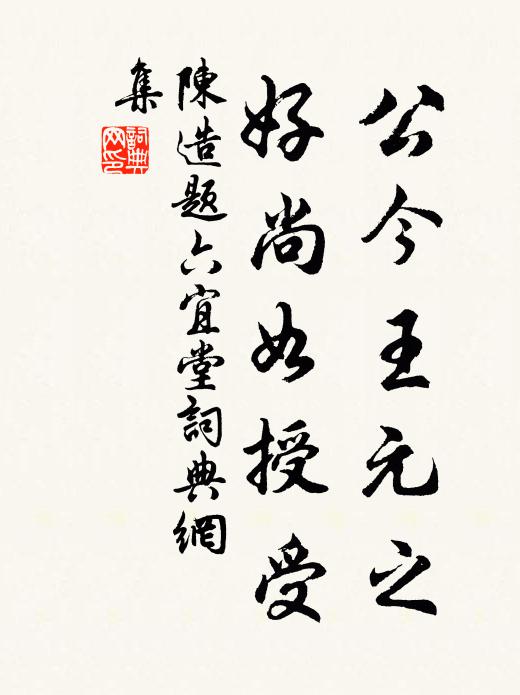 公今王元之
好尚如授受
陳造題六宜堂詞典網
集
詞典网印